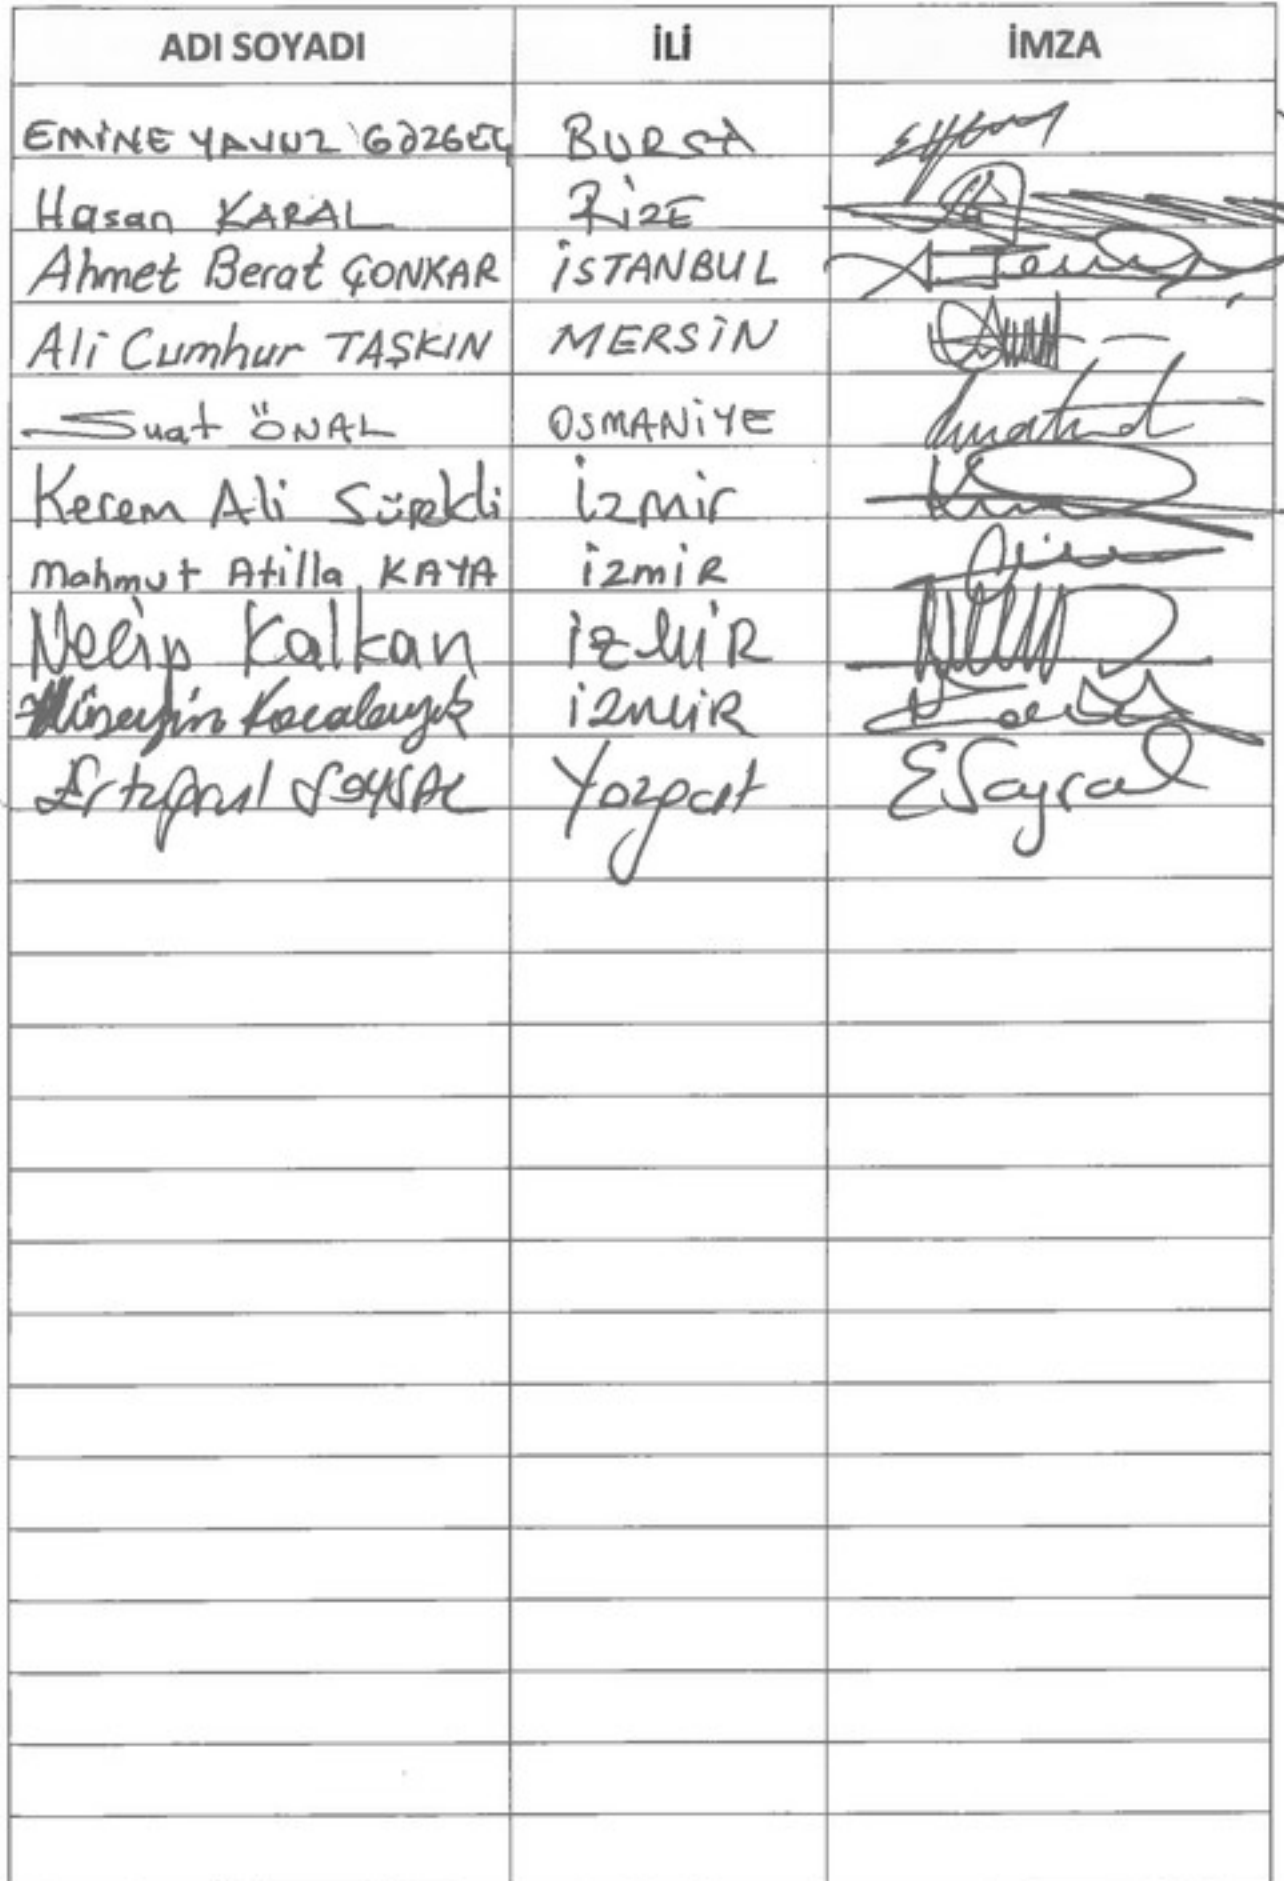 ADI SOYADI İLİ İMZA
EMİNE YAVUZ GÖZGEÇ BURSA
Hasan KARAL RİZE
Ahmet Berat ÇONKAR İSTANBUL
Ali Cumhur TAŞKIN MERSİN
Suat ÖNAL OSMANİYE
Kerem Ali Sürekli İzmir
Mahmut Atilla KAYA İzmİR
Necip Kalkan İZMİR
Hüseyin Kocabıyık İZMİR
Ertuğrul SOYSAL Yozgat ESoysal